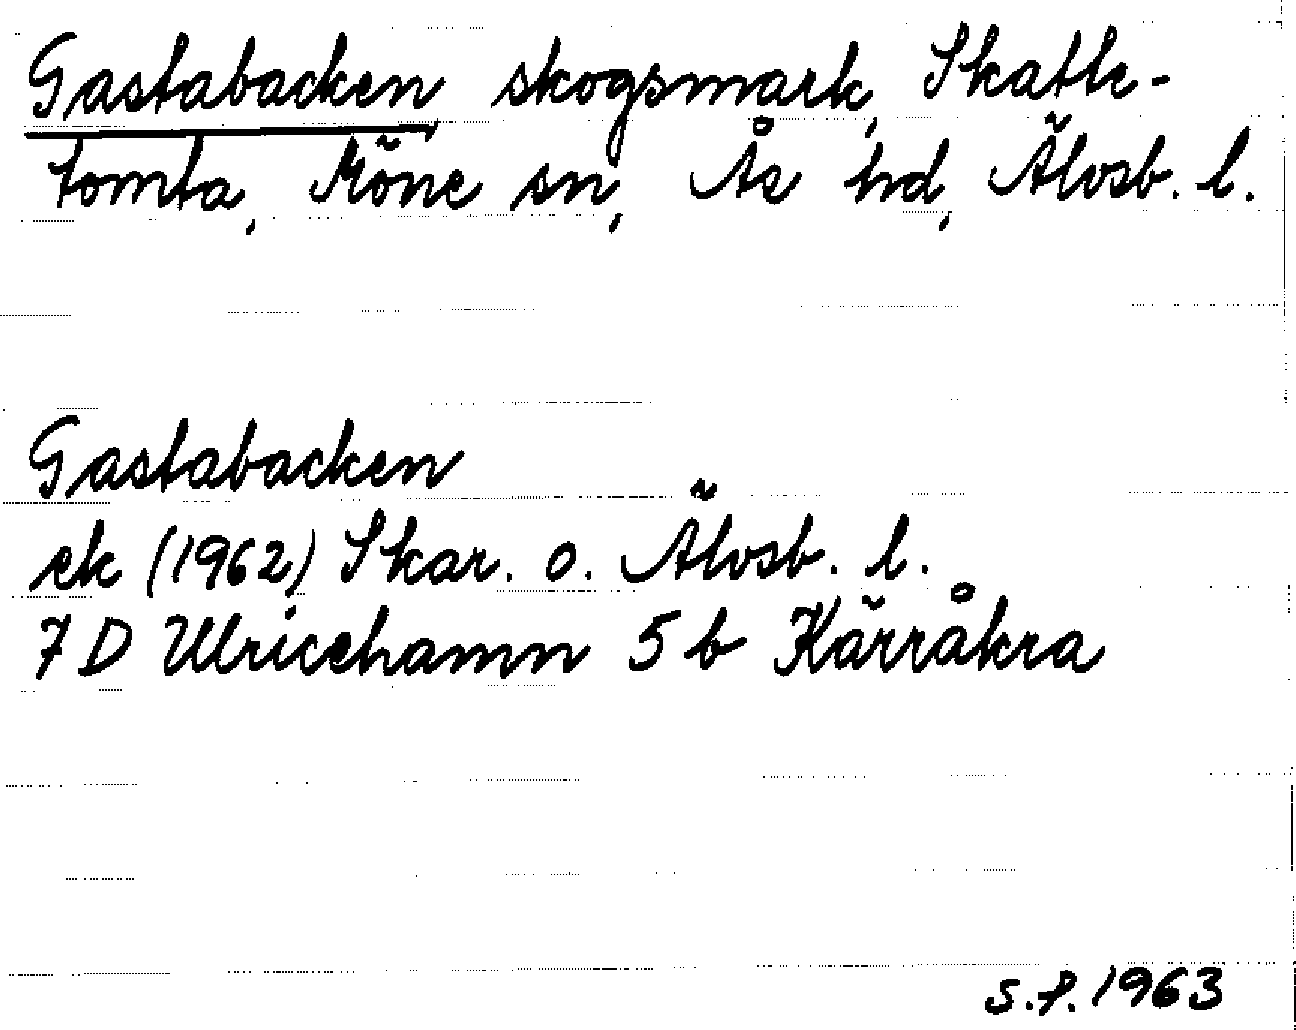 Gastabacken, skogsmark, Skatte-
tomta, Möne sn, Ås hd, Älvsb. l.
Gastabacken
ek (1962) Skar. o. Älvsb. l.
7 D Ulricehamn 5 b Kärråkra
s.f. 1963